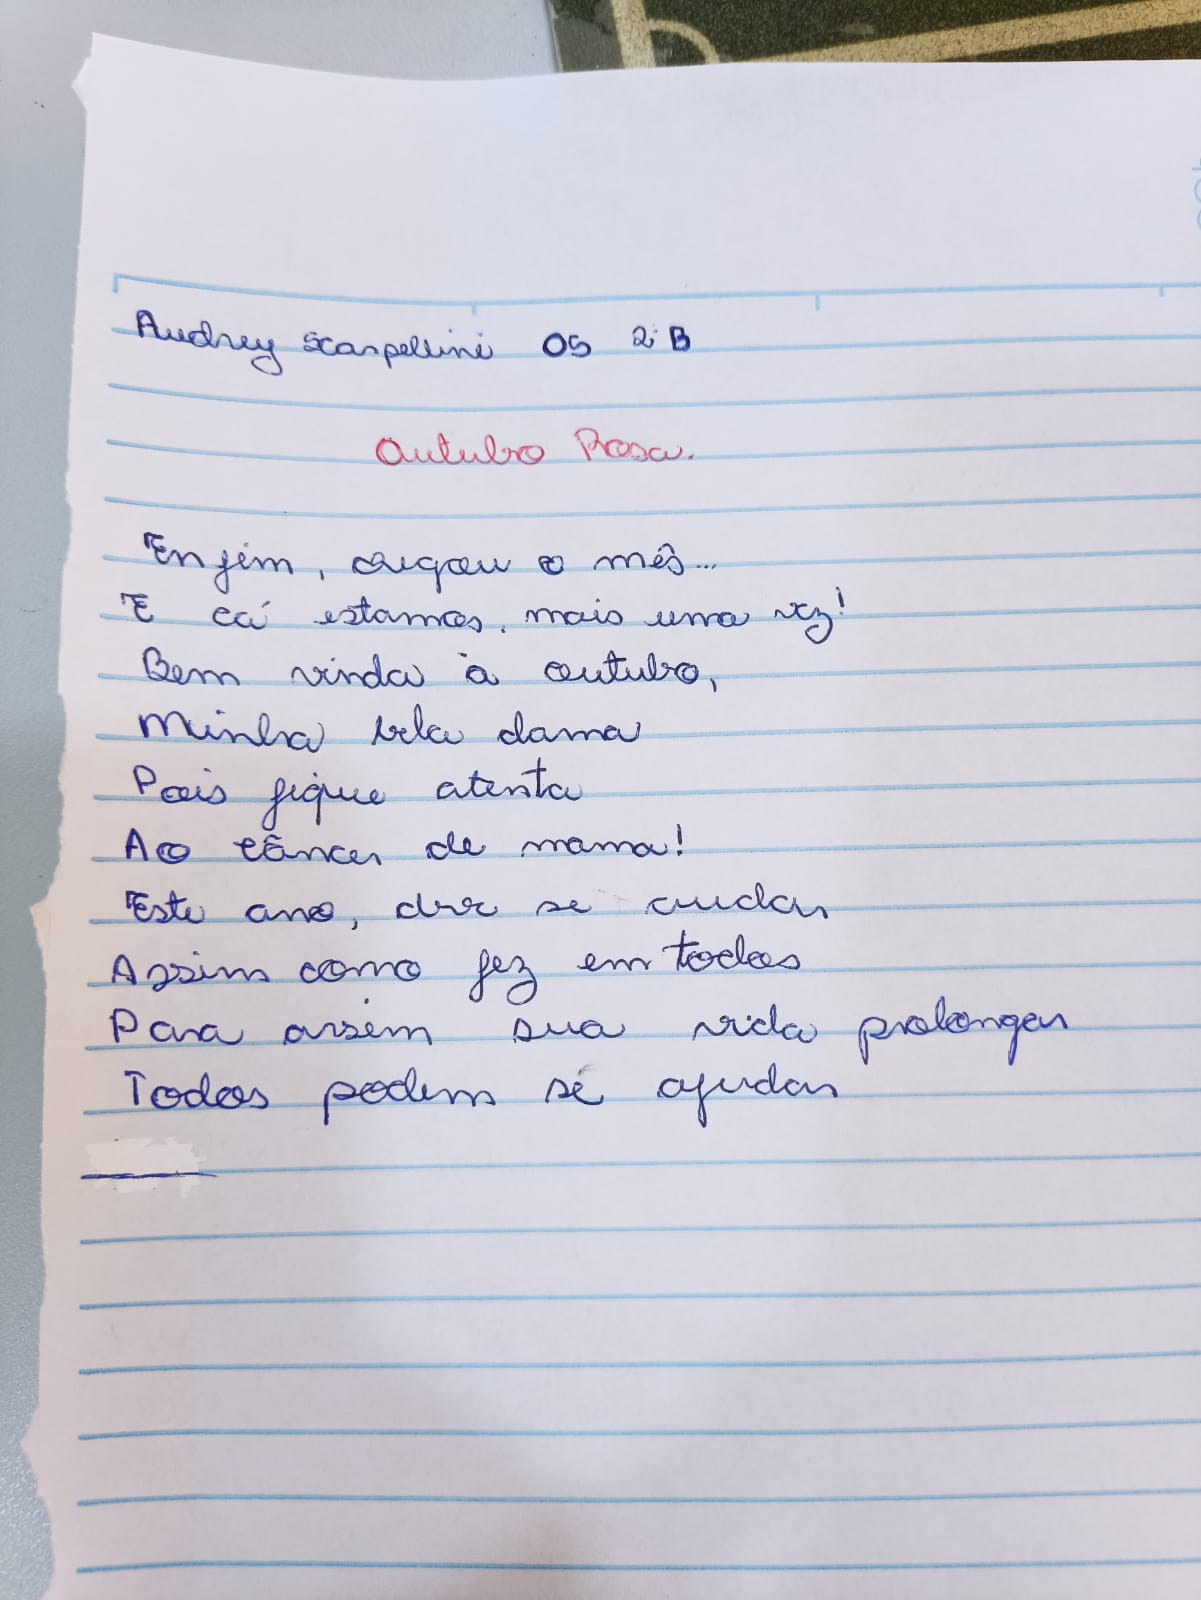 Audrey Scarpellini 05 2º B
Outubro Rosa.
Enfim, chegou o mês...
E cá estamos, mais uma vez!
Bem vinda à outubro,
Minha bela dama
Pois fique atenta
Ao câncer de mama!
Este ano, deve se cuidar
Assim como fez em todos
Para assim sua vida prolongar
Todos podem se ajudar